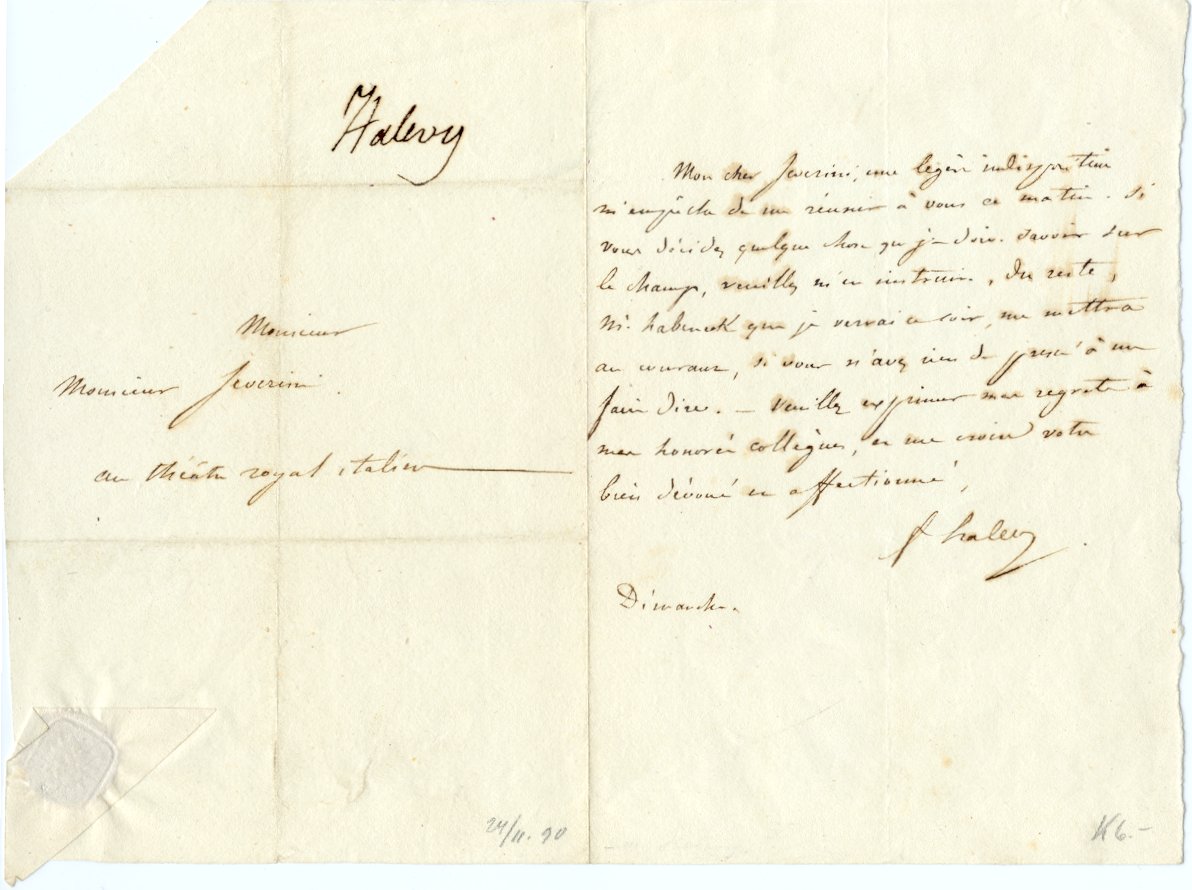 Halevy
Monsieur
Monsieur Severini.
au théâtre royal italien
24/11. 90
Mon cher Severini, une légère indisposition
m'empêche de me réunir à vous ce matin. Si
vous décidez quelque chose que je dois savoir sur
le champ, veuillez m'en instruire, du reste,
Mr. habeneck que je verrai ce soir, me mettra
au courant, si vous n'avez rien de pressé à me
faire dire. — Veuillez exprimer mes regrets à
mes honorés collègues, et me croire votre
bien dévoué et affectionné,
f halevy
Dimanche.
K6.-